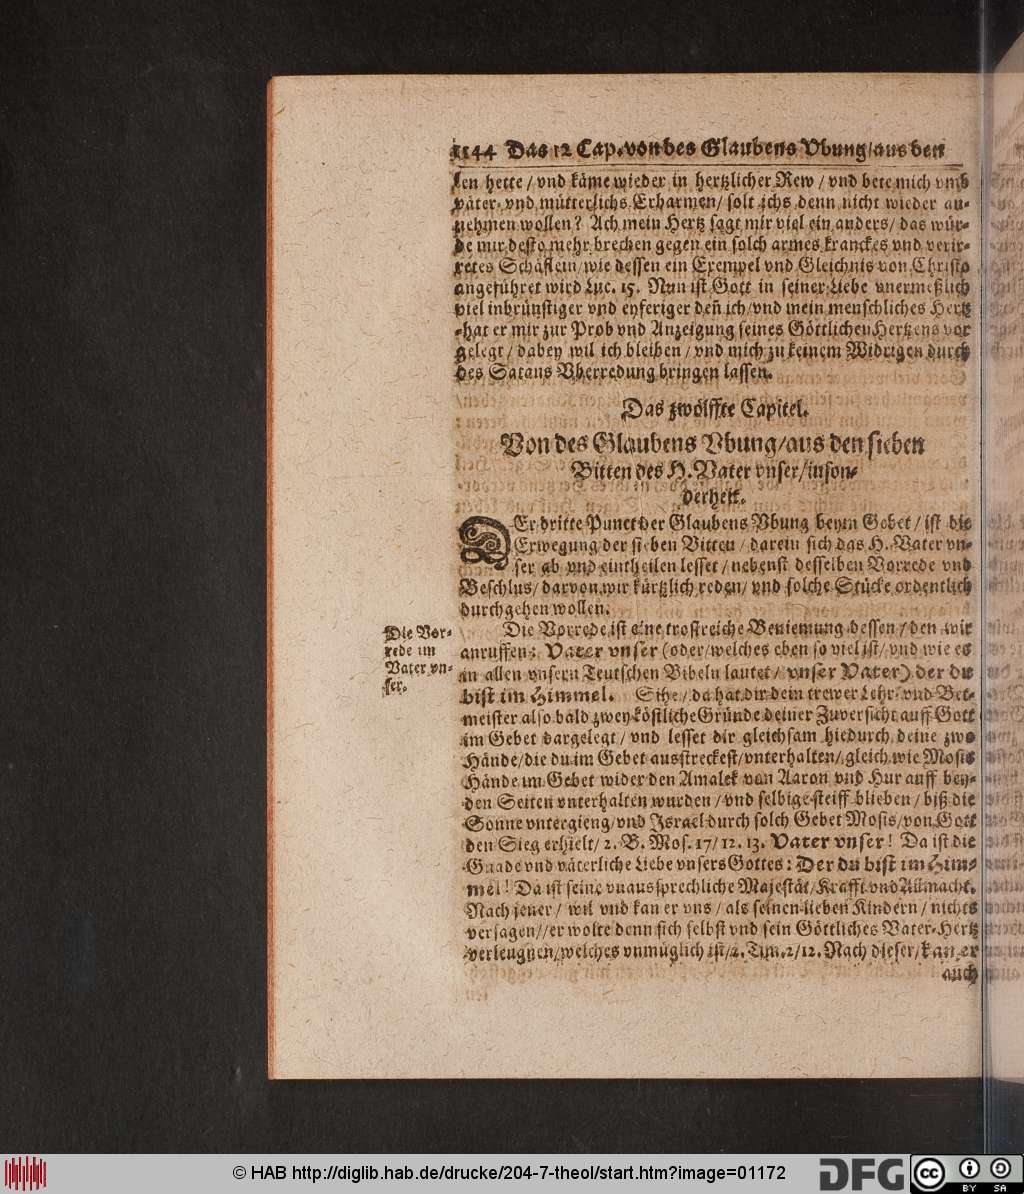 1144 Das 12 Cap. von des Glaubens Vbung/aus den
len hette / vnd käme wieder in hertzlicher Rew / vnd bete mich vmb
väter- vnd mütterlichs Erbarmen/ solt ichs denn nicht wieder an-
nehmen wollen? Ach mein Hertz sagt mir viel ein anders/ das wür-
de mir desto mehr brechen gegen ein solch armes kranckes vnd verir-
retes Schäflein/ wie dessen ein Exempel vnd Gleichnis von Christo
angeführet wird Luc. 15. Nun ist Gott in seiner Liebe vnermeßlich
viel inbrünstiger vnd eyferiger deñ ich/vnd mein menschliches Hertz
hat er mir zur Prob vnd Anzeigung seines Göttlichen Hertzens vor
gelegt / dabey wil ich bleiben / vnd mich zu keinem Widrigen durch
des Satans Vberredung bringen lassen.
Das zwölffte Capitel.
Von des Glaubens Vbung/aus den sieben
Bitten des H. Vater vnser/inson-
derheit.
DEr dritte Punct der Glaubens Vbung beym Gebet / ist die
Erwegung der sieben Bitten / darein sich das H. Vater vn-
ser ab vnd eintheilen lesset / nebenst desselben Vorrede vnd
Beschlus/ darvon wir kürtzlich reden/ vnd solche Stücke ordentlich
durchgehen wollen.
Die Vor-
rede im
Vater vn-
ser.
Die Vorrede ist eine trostreiche Beniemung dessen / den wir
anruffen: Vater vnser (oder/welches eben so viel ist/ vnd wie es
in allen vnsern Teutschen Bibeln lautet / vnser Vater) der du
bist im Himmel. Sihe / da hat dir dein trewer Lehr- vnd Bet-
meister also bald zwey köstliche Gründe deiner Zuversicht auff Gott
im Gebet dargelegt / vnd lesset dir gleichsam hiedurch deine zwo
Hände/die du im Gebet ausstreckest/vnterhalten/ gleich wie Mosis
Hände im Gebet wider den Amalek von Aaron vnd Hur auff bey-
den Seiten vnterhalten wurden / vnd selbige steiff blieben / biß die
Sonne vntergieng/vnd Israel durch solch Gebet Mosis/von Gott
den Sieg erhielt/ 2. B. Mos. 17/ 12. 13. Vater vnser! Da ist die
Gnade vnd väterliche Liebe vnsers Gottes: Der du bist im Him-
mel! Da ist seine vnaussprechliche Majestät/Krafft vnd Allmacht.
Nach jener / wil vnd kan er vns / als seinen lieben Kindern / nichts
versagen//er wolte denn sich selbst vnd sein Göttliches Vater-Hertz
verleugnen/welches vnmüglich ist/2. Tim. 2/12. Nach dieser/kan er
auch
© HAB http://diglib.hab.de/drucke/204-7-theol/start.htm?image=01172
DFG
cc
BY SA